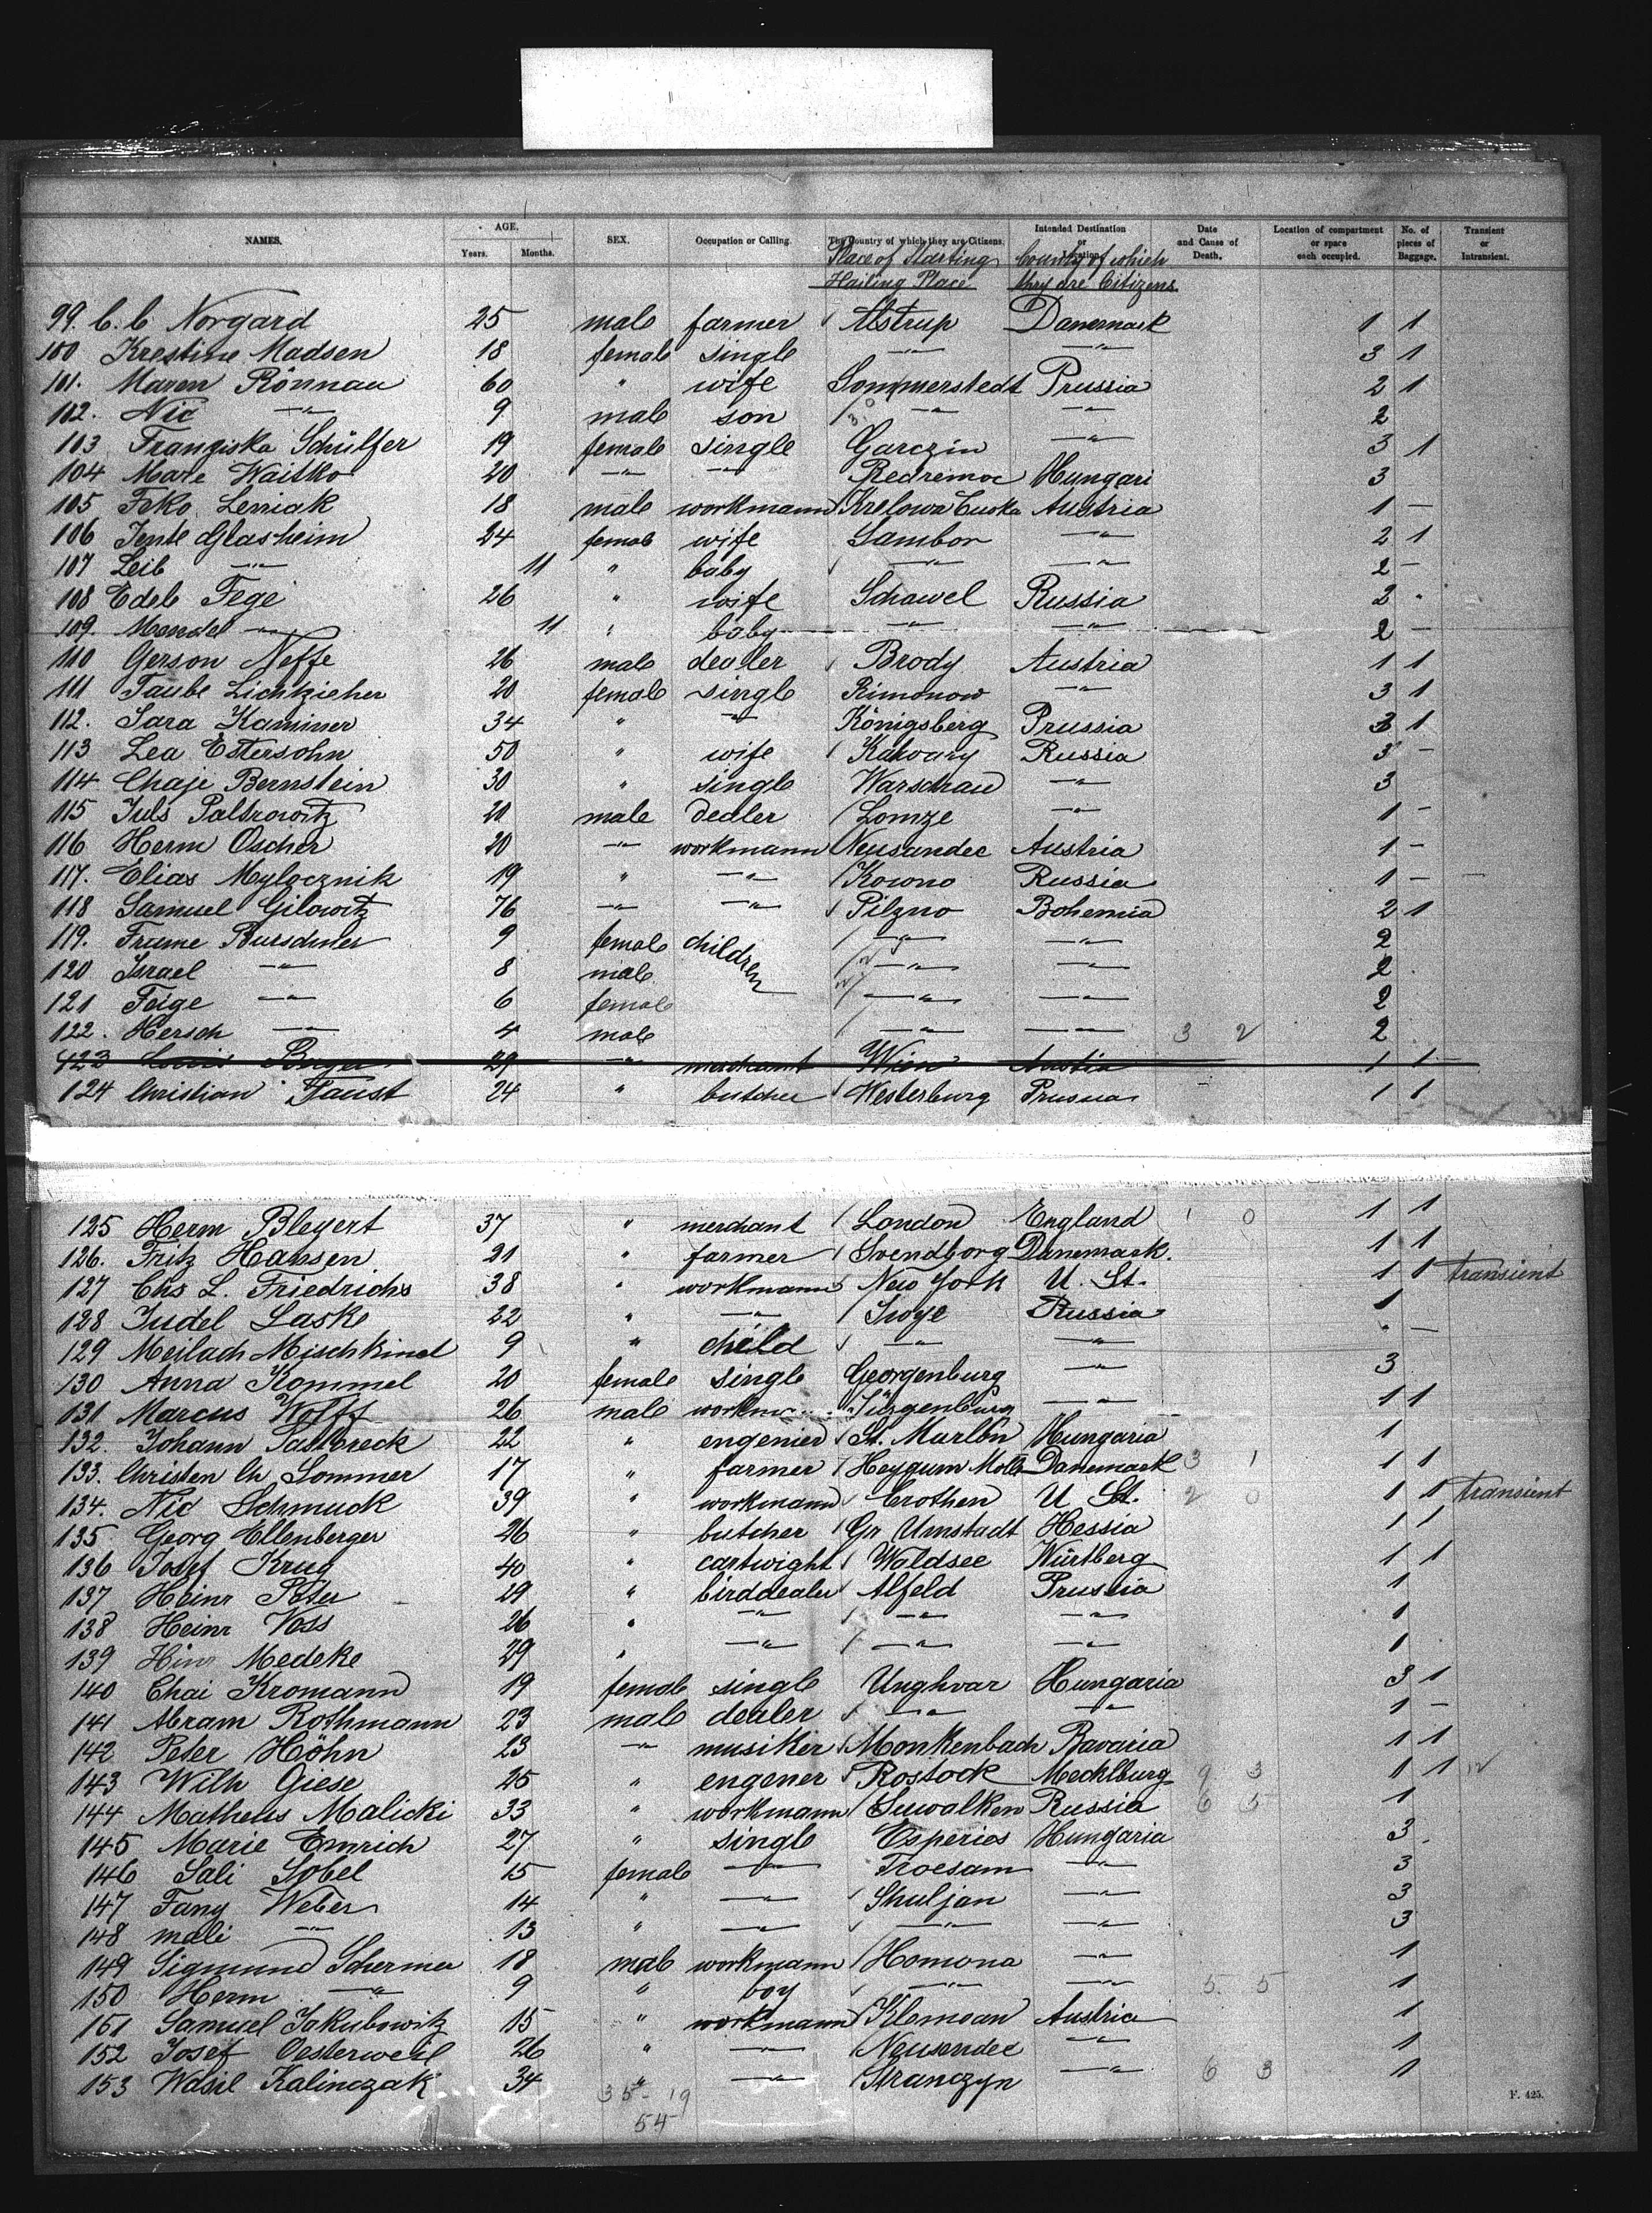 NAMES. AGE. Years. Months. SEX. Occupation or Calling. The Country of which they are Citizens. Intended Destination or Location. Date and Cause of Death. Location of compartment or space each occupied. No. of pieces of Baggage. Transient or Intransient.
Place of Starting County of which
Hailing Place they are Citizens
99. C. C Norgard 25 male farmer Alstrup Danemark 1 1
100 Krestine Madsen 18 female single —"— —"— 3 1
101. Maren Rönnau 60 " wife Sommerstedt Prussia 2 1
102. Nic —"— 9 male son —"— —"— 2
103 Franziska Schülfer 19 female single Garczin —"— 3 1
104 Mare Waitko 20 —"— —"— Redremoc Hungari 3
105 Feko Leniak 18 male workmann Krelowa Austria 1 —
106 Jente Glasheim 24 female wife Sambor —"— 2 1
107 Leib —"— 11 " baby —"— —"— 2 —
108 Edele Fege 26 " wife Schawel Russia 2 "
109. Mendel —"— 11 " baby —"— —"— 2 —
110 Gerson Neffe 26 male dealer Brody Austria 1 1
111 Taube Lichtzieher 20 female single Rimonow —"— 3 1
112. Sara Kaminer 34 " —"— Königsberg Prussia 3 1
113 Lea Estersohn 50 " wife Russia 3 —
114 Chaje Bernstein 30 " single Warschau —"— 3
115 Juls Paltrowitz 21 male dealer Lomze —"— 1 —
116 Herm Oscher 20 —"— workmann Neusandec Austria 1 —
117. Elias Mylocznik 19 " —"— Kowno Russia 1 — —
118 Samuel Gilowitz 76 —"— —"— Pilzno Bohemia 2 1
119. Frume 9 female children —"— —"— 2
120 Israel —"— 8 male —"— —"— 2
121 Feige —"— 6 female —"— —"— 2
122. Hersch —"— 4 male —"— —"— 3 2 2
123 Louis 29 —"— merchant Wien Austria 1 1
124 Christian Faust 24 " butcher Westerburg Prussia 1 1
125 Herm Bleyert 37 " merchant London England 1 0 1 1
126. Fritz Hansen 21 " farmer Svendborg Danemark. 1 1
127 Chs L. Friedrichs 38 " workmann New York U. St. 1 1 transient
128 Judel Laske 22 " —"— Russia 1
129 Meilach Mischkind 9 " child —"— —"— " —
130 Anna Kommel 20 female single Georgenburg —"— 3
131 Marcus Wolff 26 male Jürgenburg —"— 1 1
132. Johann Sastoreck 22 " engenier St. Marlon Hungaria 1
133. Christen Ch Sommer 17 " farmer Heygum Danemark 3 1 1 1
134. Nic Schmuck 39 " workmann Crothen U St. 2 0 1 1 transient
135 Georg Ellenberger 26 " butcher Gr Umstadt Hessia 1 1
136 Josef Krug 40 " cartwight Waldsee Würtberg 1 1
137 Heinr Peter 29 " birddealer Alfeld Prussia 1
138 Heinr Voss 26 " —"— —"— —"— 1
139 Hinr Medeke 29 " —"— —"— —"— 1
140 Chai Kromann 19 female single Unghvar Hungaria 3 1
141 Abram Rothmann 23 male dealer —"— —"— 1 —
142 Peter Höhn 23 —"— musiker Monkenbach Bavaria 1 1
143 Wilh Giese 25 " engener Rostock Mecklburg 9 3 1 1
144 Matheus Malicki 33 " workmann Suwalken Russia 6 5 1
145 Marie Emrich 27 " single Esperies Hungaria 3
146 Sali Sobel 15 female —"— Troesam —"— 3
147 Fany Weber 14 " —"— Shuljan —"— 3
148 mali —"— 13 " —"— —"— —"— 3
149 Sigmund Schermer 18 male workmann Homona —"— 1
150 Herm —"— 9 " boy —"— —"— 5 5 1
151 Samuel Jakubowitz 15 " workmann Klemoan Austria 1
152 Josef Oesterweil 26 " —"— Neusandec —"— 1
153 Wasil Kalinczak 34 " —"— Stranczyn —"— 6 3 1
35-19
54
F. 425.